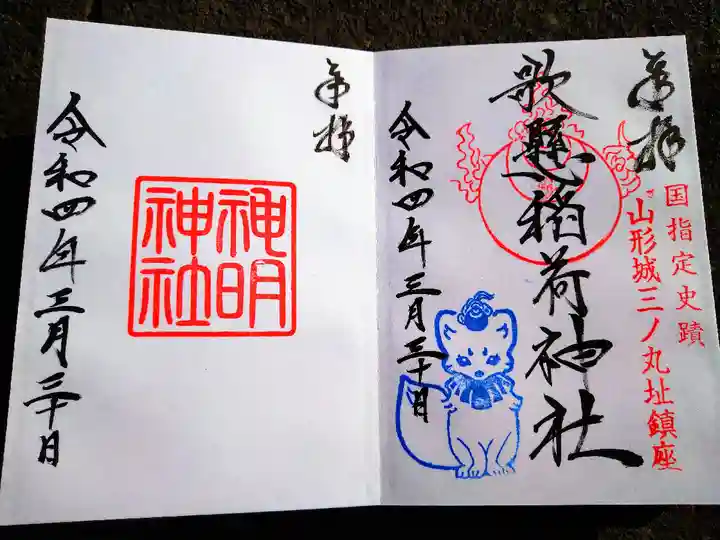 奉拝
国指定史蹟
山形城三ノ丸址鎮座
歌懸稲荷神社
令和四年三月三十日
奉拝
神明
神社
令和四年三月三十日